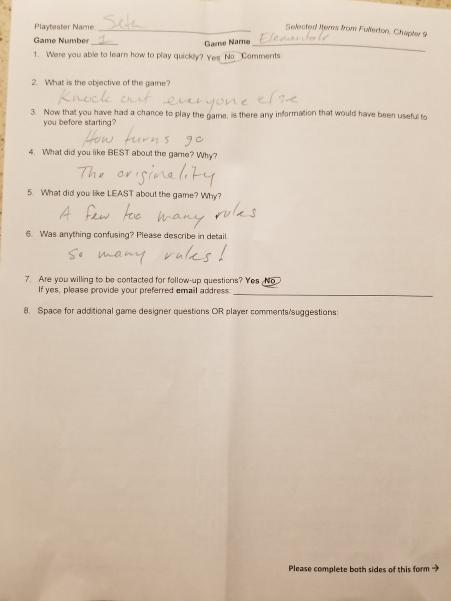 Playtester Name Seth Selected Items from Fullerton, Chapter 9
Game Number 1 Game Name Elementals
1. Were you able to learn how to play quickly? Yes No Comments:
2. What is the objective of the game?
Knock out everyone else
3. Now that you have had a chance to play the game, is there any information that would have been useful to
you before starting?
How turns go
4. What did you like BEST about the game? Why?
The originality
5. What did you like LEAST about the game? Why?
A few too many rules
6. Was anything confusing? Please describe in detail.
So many rules!
7. Are you willing to be contacted for follow-up questions? Yes No
If yes, please provide your preferred email address:
8. Space for additional game designer questions OR player comments/suggestions:
Please complete both sides of this form →